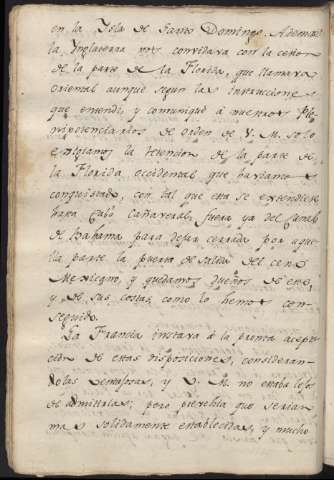 en la Isla de Santo Domingo. Ademas
la Inglaterra nos convidava con la cesion
de la parte de la Florida, que llamava
oriental aunque segun las instrucciones
que entendi, y comuniqué á nuestros Ple-
nipotenciarios de orden de V. M. solo
exigiamos la retencion de la parte de
la Florida occidental que haviamos
conquistado, con tal que esta se extendiese
hasta Cabo Cañaveral, fuera ya del Canal
de Bahama para dejar cerrada por aque-
lla parte la puerta de salida del seno
Mexicano, y quedamos dueños de el,
y de sus costas, como lo hemos con-
seguido.
La Francia instava á la pronta acepta-
cion de estas disposiciones, consideran-
dolas ventajosas, y V. M. no estaba lejos
de admitirlas; pero prevehia que serian
mas solidamente establecidas, y mucho